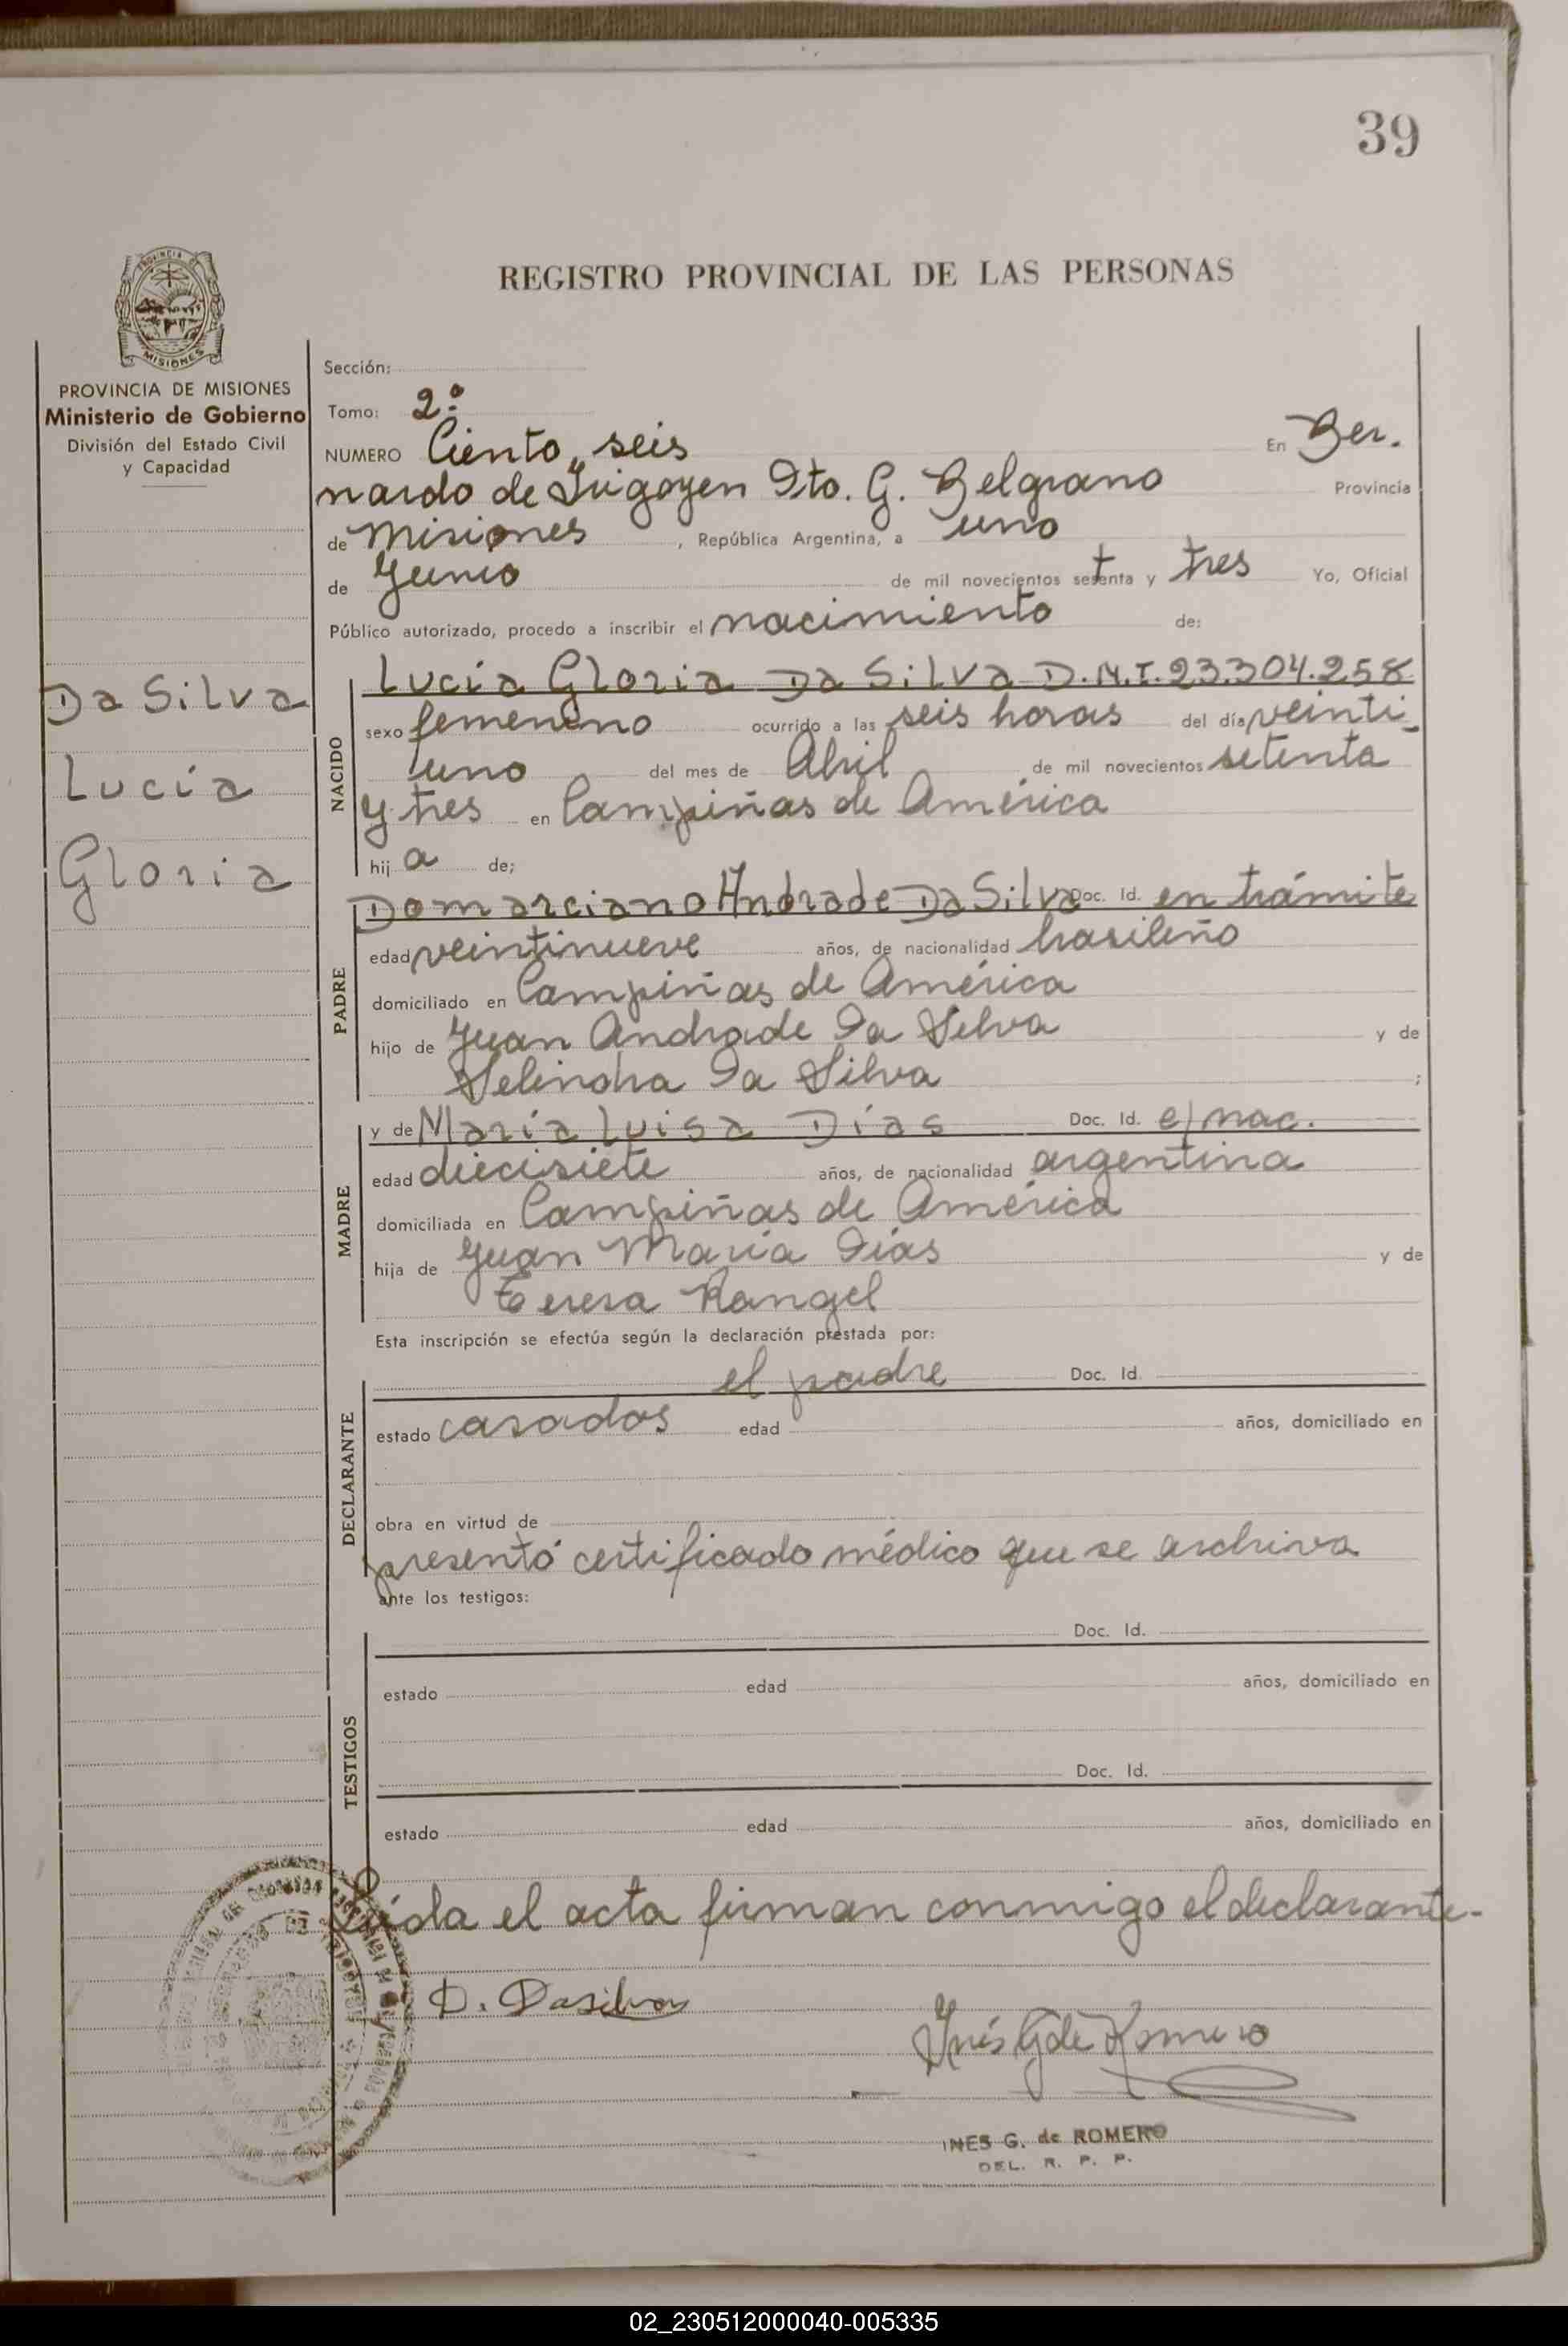 39
REGISTRO PROVINCIAL DE LAS PERSONAS
MISIONES
PROVINCIA DE MISIONES
Ministerio de Gobierno
División del Estado Civil
y Capacidad
Da Silva
Lucía
Gloria
Sección:
Tomo: 2º
NUMERO Ciento seis En Ber.
nardo de Irigoyen Dto. G. Belgrano Provincia
de Misiones , República Argentina, a uno
de Junio de mil novecientos setenta y tres Yo, Oficial
Público autorizado, procedo a inscribir el nacimiento de:
NACIDO
Lucía Gloria Da Silva D.N.I. 23.304.258
sexo femenino ocurrido a las seis horas del día veinti_
uno del mes de Abril de mil novecientos setenta
y tres en Campiñas de América
hij a de;
PADRE
Domarciano Andrade Da Silva Doc. Id. en trámite
edad veintinueve años, de nacionalidad brasileño
domiciliado en Campiñas de América
hijo de Juan Andrade Da Silva y de
Da Silva ;
MADRE
y de María Luisa Días Doc. Id. e/nac.
edad diecisiete años, de nacionalidad argentina
domiciliada en Campiñas de América
hija de Juan María Días y de
Teresa Rangel
Esta inscripción se efectúa según la declaración prestada por:
DECLARANTE
el padre Doc. Id.
estado casados edad años, domiciliado en
obra en virtud de
presentó certificado médico que se archiva
ante los testigos:
TESTIGOS
Doc. Id.
estado edad años, domiciliado en
Doc. Id.
estado edad años, domiciliado en
Leída el acta firman conmigo el declarante.-
D. Dasilva
Inés G de Romero
INES G. de ROMERO
DEL. R. P. P.
02_230512000040-005335